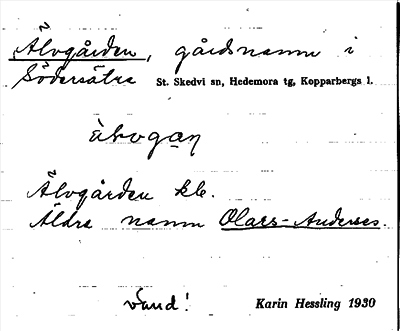 Älvgården, gårdsnamn i
Södersätra St. Skedvi sn, Hedemora tg, Kopparbergs l.
Älvgården kb.
Äldre namn Olars-Anderses.
Vänd! Karin Hessling 1930